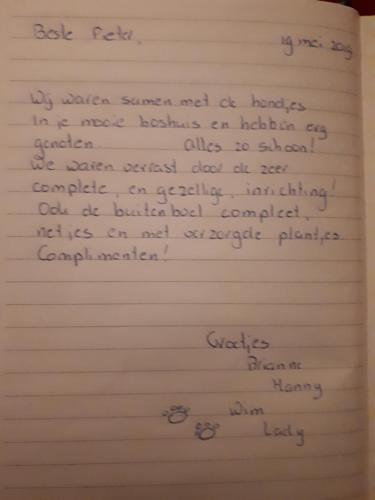 Beste Pieter, 19 mei 2019
Wij waren samen met de hondjes
in je mooie boshuis en hebben erg
genoten. alles zo schoon!
We waren verrast door de zeer
complete, en gezellige, inrichting!
Ook de buitenboel compleet,
netjes en met verzorgde plantjes.
Complimenten!
Groetjes
Brianne
Hanny
Wim
Lady